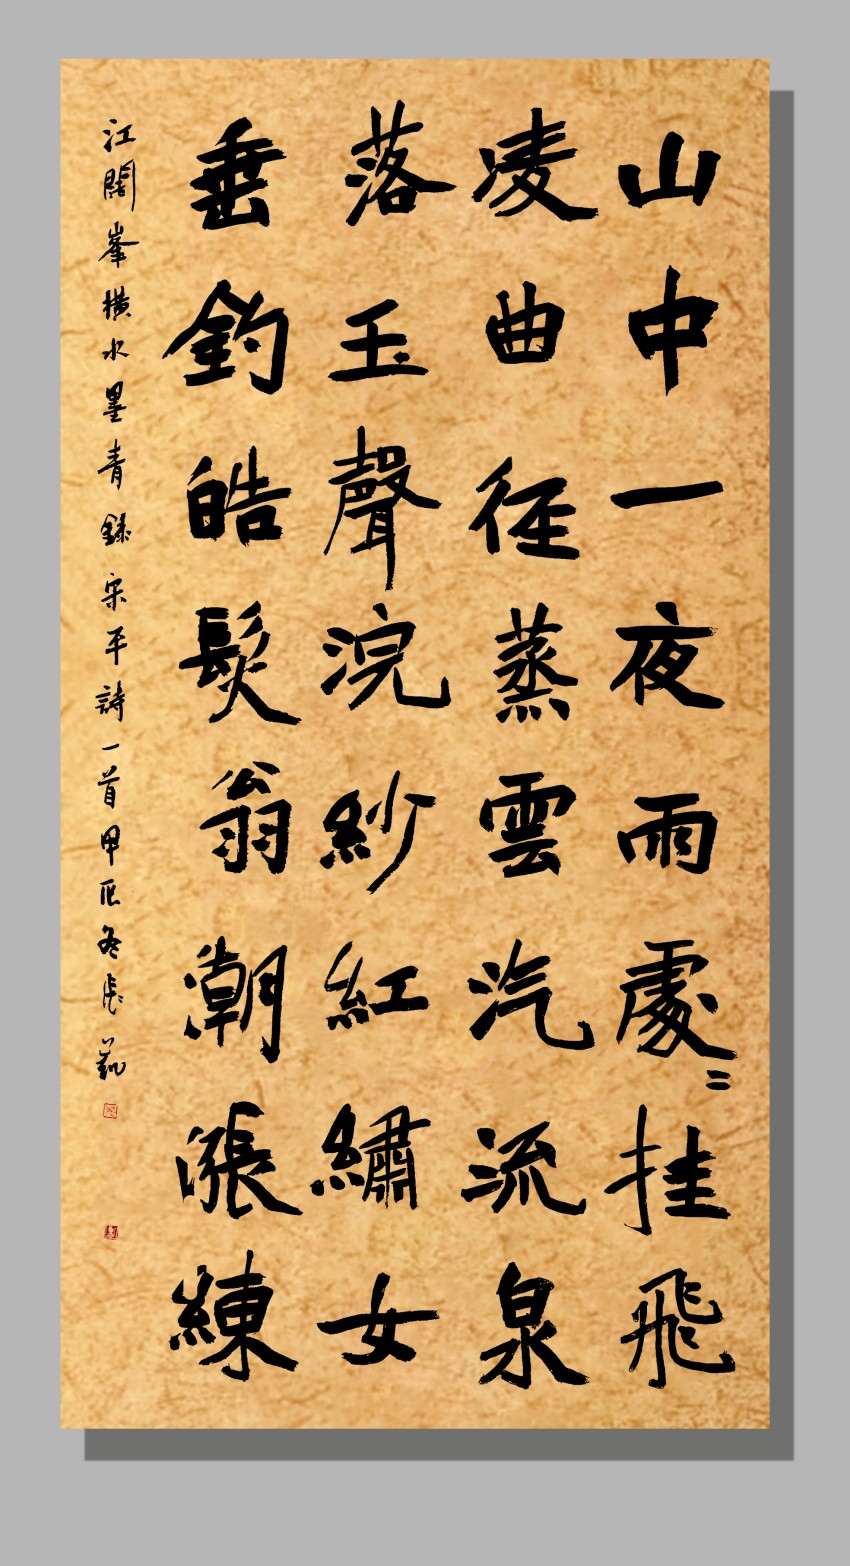 山中一夜雨處〻挂飛
凌曲徑蒸雲汽流泉
落玉聲浣紗紅繡女
垂釣皓髮翁潮漲練
江闊峯橫水墨青錄宋平詩一首甲辰冬張